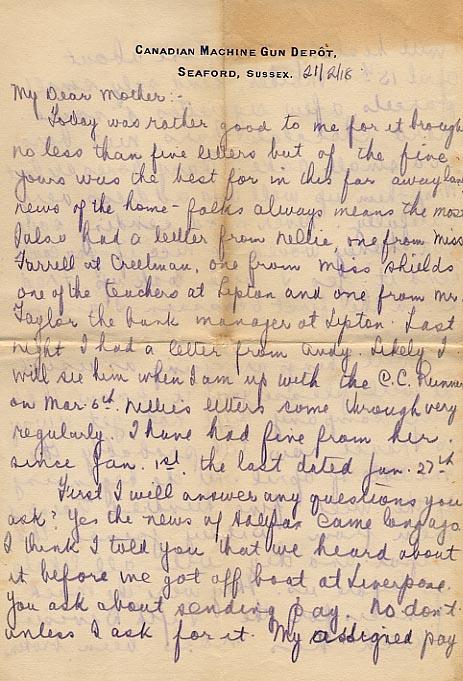 CANADIAN MACHINE GUN DEPÔT,
SEAFORD, SUSSEX. 21/2/18
My Dear Mother:-
Today was rather good to me for it brough
no less than five letters but of the five
yours was the best for in this far away lan
news of the home-folks always means the mos
I also had a letter from Nellie, one from Miss
Farrell at Creelman, one from Miss Shields
one of the teachers at Lipton and one from Mr.
Taylor the bank manager at Lipton. Last
night I had a letter from Andy. Likely I
will see him when I am up with the C.C. Runner
on Mar. 6th. Nellie's letters come through very
regularly. I have had five from her
since Jan. 1st. the last dated Jan. 27th
First I will answer any questions you
ask? Yes the news of Halifax came long ago.
I think I told you that we heard about
it before we got off boat at Liverpool.
You ask about sending pay. No don't
unless I ask for it. My assigned pay